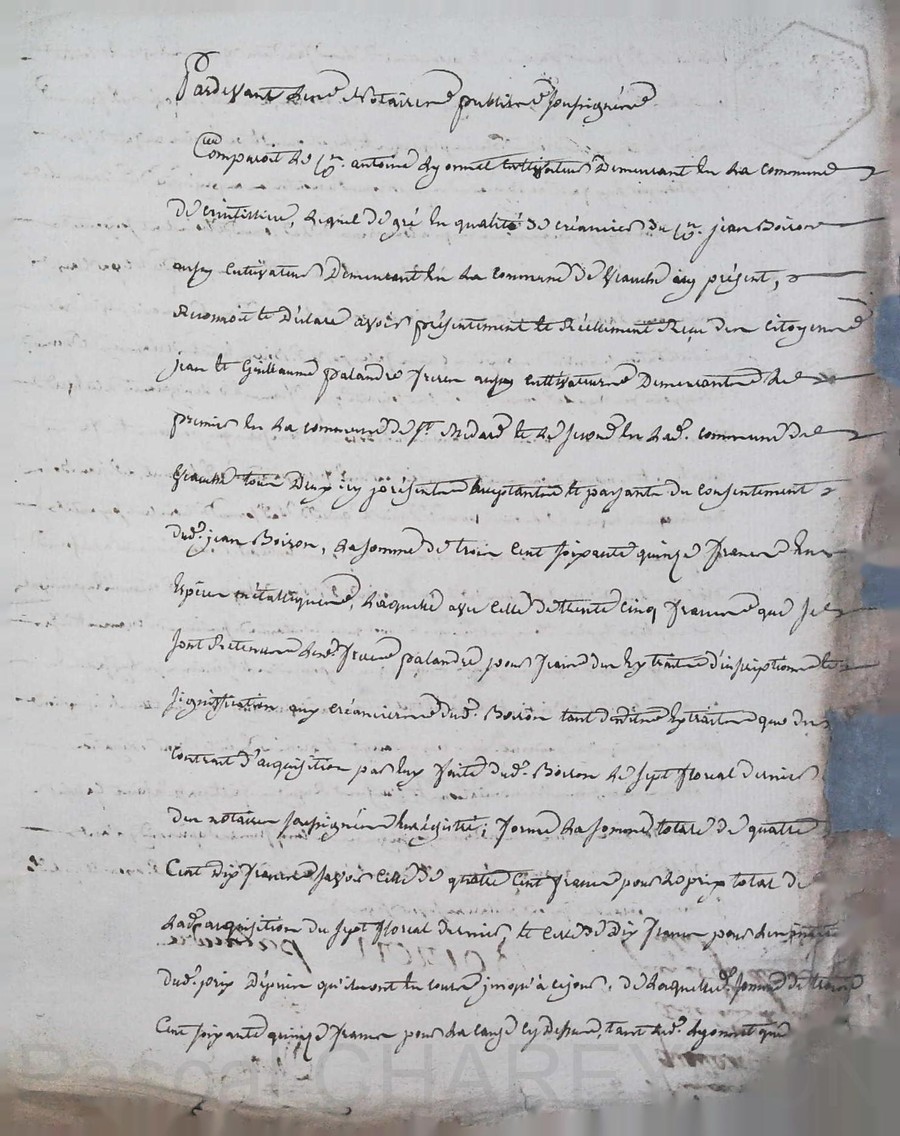 Pardevant les Notaires publics soussignés
Comparoit le Cen. antoine Lyonnet Cultivateur Demeurant en la commune
De , lequel de gré en qualité de créancier du Cen. jean Boiron
aussy Cultivateur Demeurant en la commune de Granche icy présent,
Reconnoit et Déclare avoir présentement et Réellement Reçu des Citoyens
jean et Guillaume palandre freres aussy Cultivateurs Demeurants le
premier en la commune de St. Medard et le second en lad. commune de
Granche tous Deux icy présents acceptants et payants du Consentement
dud. jean Boiron, la somme de trois Cent soixante quinze francs en
Espèces métalliques, laquelle avec celle de trente Cinq francs que se
sont Retenus lesd. freres palandre pour frais des Extraits d'inscriptions et
signification aux créanciers dud. Boiron tant desdits Extraits que du
Contrat d'acquisition par Eux faite dud. Boiron le sept floreal dernier
des notaires soussignés Enregistré; forme la somme totale de quatre
Cent Dix francs savoir Celle de quatre Cent francs pour le prix total de
lad. acquisition du sept floreal dernier, et celle de Dix francs pour les intérêts
dud. prix Depuis qu'ils ont eu cours jusqu'à ce jour, de laquelle d. somme de trois
Cent soixante quinze francs pour la cause cy Dessus, tant led. Lyonnet que
Pascal CHAREYRON